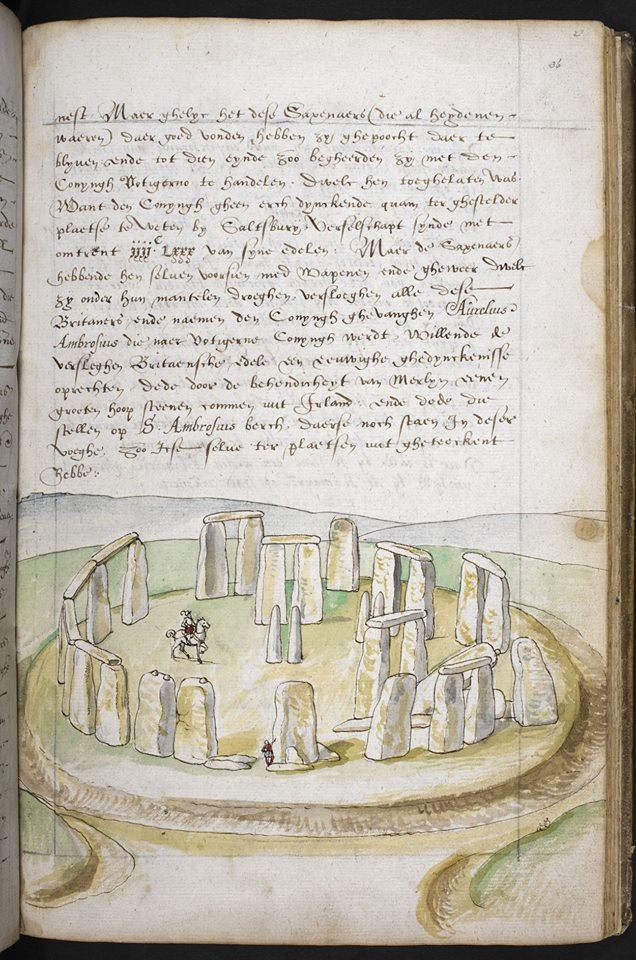 36
nest. Maer ghelyc het dese Saxenaers (die al heydenen
waeren) daer goed vonden, hebben zy ghepoocht daer te
blyven. ende tot dien eynde zoo begheerden zy met den
Conyngh Votigerno te handelen. dwelc hen toeghelaten was.
Want den Conyngh gheen erch dynckende quam ter ghestelder
plaetse te weten by Saltsbury. verselschapt synde met
omtrent iiiiC Lxxx van syne edelen. Maer de Saxenaers
hebbende hen selven voorsien med wapenen ende gheweer dwelc
zy onder hun mantelen droeghen. versloeghen alle dese
Britaners, ende naemen den Conyngh ghevanghen. Aurelius
Ambrosius die naer Votigerne Conyngh werdt. Willende de
versleghen Britaensche edele een eeuwighe ghedynckenisse
oprechten, dede door de behendicheyt van Merlyn eenen
grooten hoop steenen commen uut Irland. ende dede die
stellen op S. Ambrosius berch, daerse noch staen In deser
voeghe, zoo Icse selve ter plaetsen uut gheteeckent
hebbe.